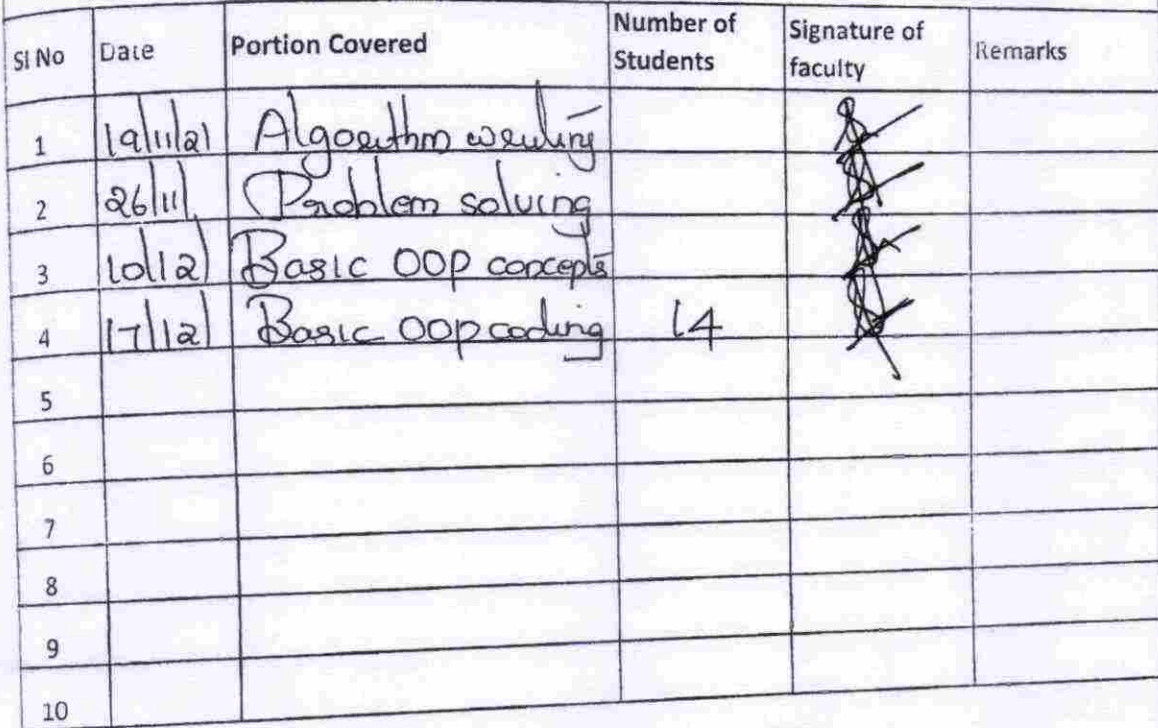 Sl No Date Portion Covered Number of Students Signature of faculty Remarks
1 19/11/21 Algorithm writing
2 26/11 Problem solving
3 10/12 Basic OOP concepts
4 17/12 Basic OOP coding 14
5
6
7
8
9
10